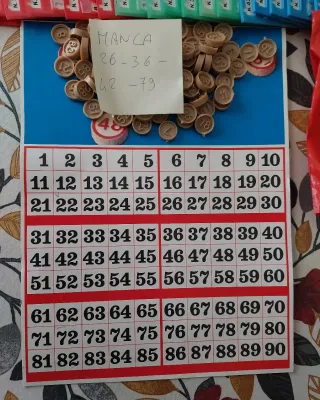 MANCA
26-36-
42-79
1 2 3 4 5 6 7 8 9 10
11 12 13 14 15 16 17 18 19 20
21 22 23 24 25 26 27 28 29 30
31 32 33 34 35 36 37 38 39 40
41 42 43 44 45 46 47 48 49 50
51 52 53 54 55 56 57 58 59 60
61 62 63 64 65 66 67 68 69 70
71 72 73 74 75 76 77 78 79 80
81 82 83 84 85 86 87 88 89 90